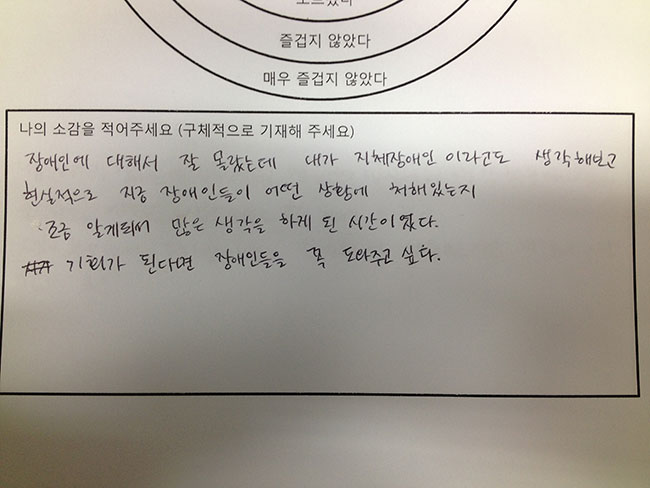 즐겁지 않았다
매우 즐겁지 않았다
나의 소감을 적어주세요 (구체적으로 기재해 주세요)
장애인에 대해서 잘 몰랐는데 내가 지체장애인 이라고도 생각해보고
현실적으로 지금 장애인들이 어떤 상황에 처해있는지
조금 알게되서 많은 생각을 하게 된 시간이였다.
기회가 된다면 장애인들을 꼭 도와주고 싶다.